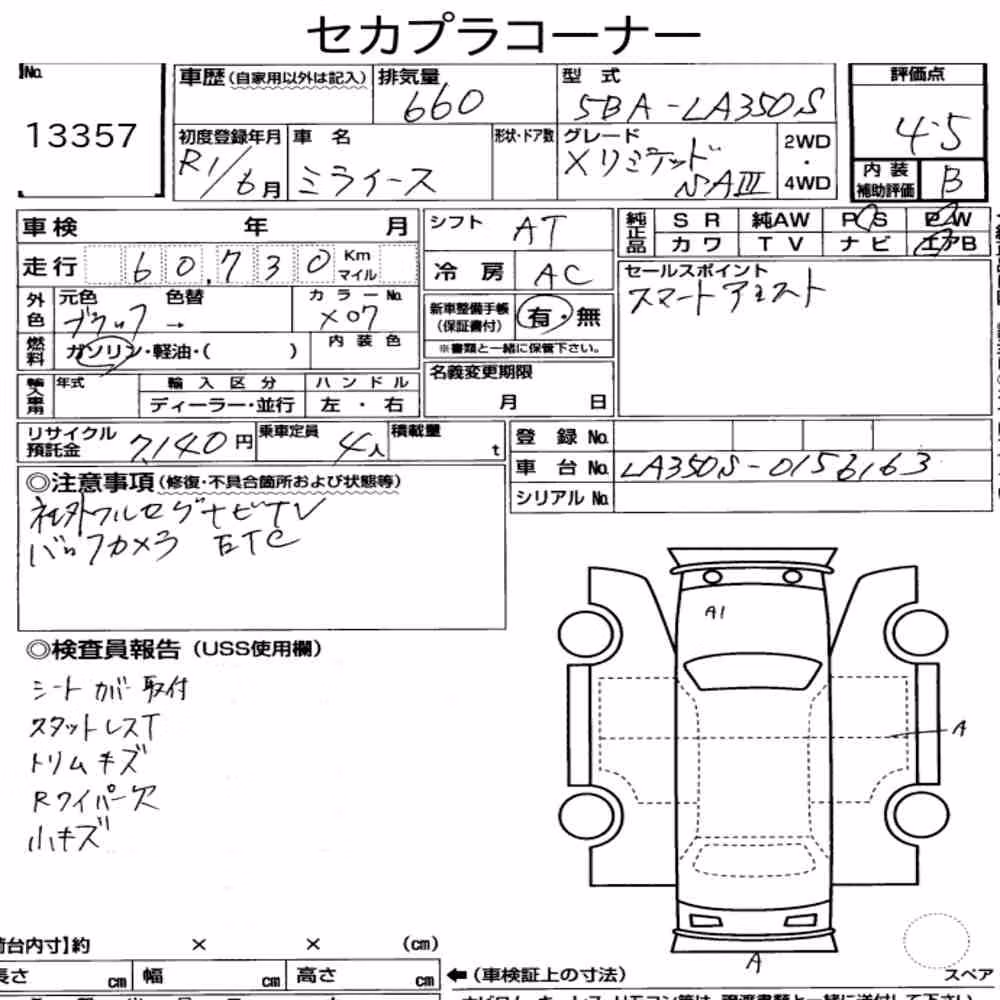 セカプラコーナー
No.
13357
車歴(自家用以外は記入)
排気量
660
型式
5BA-LA350S
評価点
4.5
初度登録年月
R1/6月
車名
ミライース
形状・ドア数
グレード
Xリミテッド
SAⅢ
2WD
・
4WD
内装
補助評価
B
車検 年 月
走行 60,730 Km
マイル
外色
元色 色替
ブラック →
カラーNo.
X07
燃料
ガソリン・軽油・( )
内装色
輸入車用
年式
輸入区分
ディーラー・並行
ハンドル
左・右
シフト AT
冷房 AC
新車整備手帳
(保証書付)
有・無
※書類と一緒に保管下さい。
名義変更期限
月 日
純正品
SR 純AW PS PW
カワ TV ナビ エアB
セールスポイント
スマートアシスト
リサイクル
預託金
7,140円
乗車定員
4人
積載量
t
登録No.
車台No. LA350S-0156163
シリアルNo.
◎注意事項(修復・不具合箇所および状態等)
社外フルセグナビTV
バックカメラ ETC
◎検査員報告(USS使用欄)
シートカバー取付
スタットレスT
トリムキズ
Rワイパー欠
小キズ
A1
A
A
荷台内寸】約 × × (cm)
長さ cm 幅 cm 高さ cm
←(車検証上の寸法)
スペア